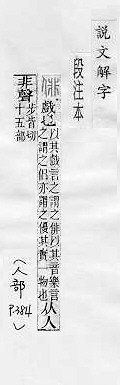 說文解字
段注本
俳 戲也以其戲言之謂之俳以其音樂言
之謂之倡亦謂之優其實一物也从人
非聲步皆切
十五部
(人部 P.384)